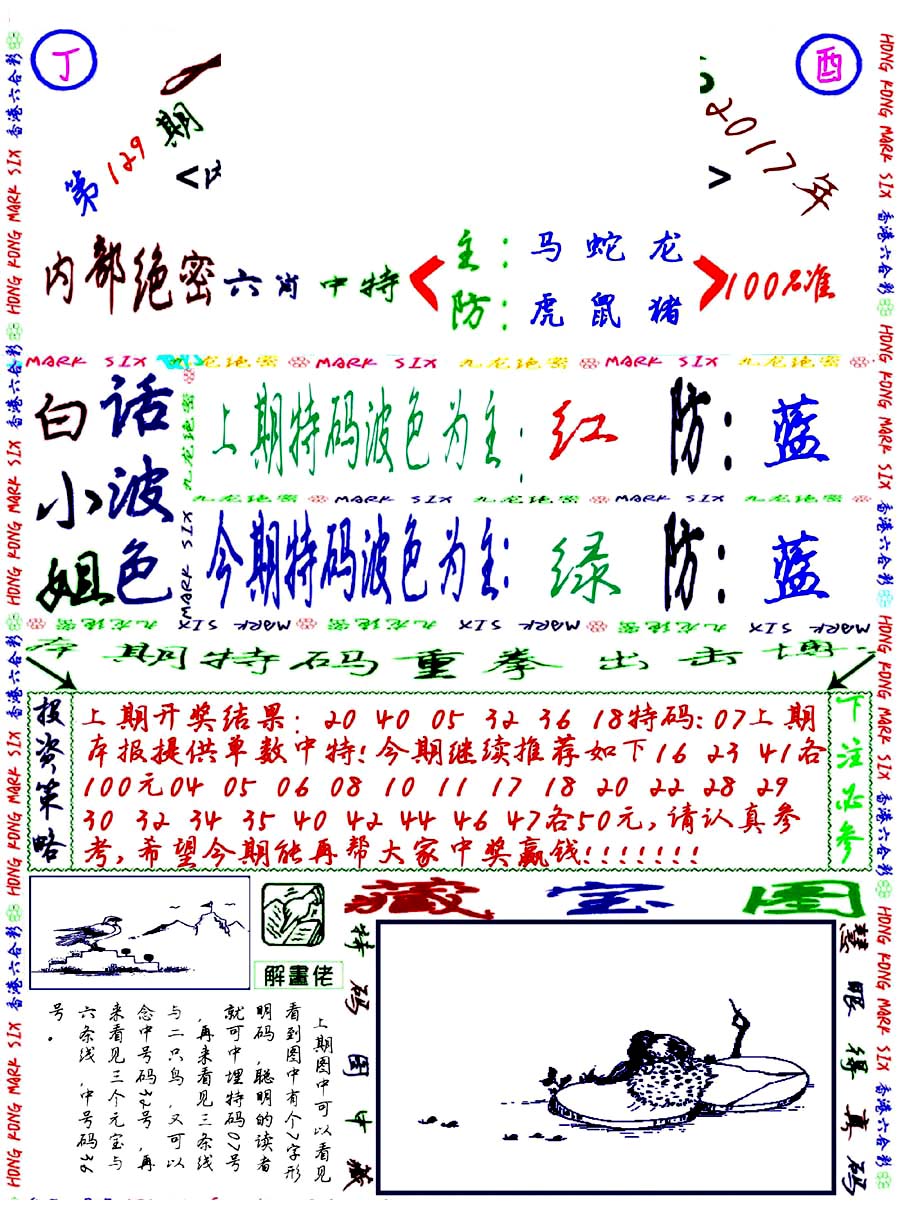 丁
酉
第129期
2017年
< >
内部绝密六肖中特
主：马 蛇 龙
防：虎 鼠 猪
100%准
MARK SIX 九龙绝密 MARK SIX 九龙绝密 MARK SIX 九龙绝密
白小姐
话波色
上期特码波色为主：红 防：蓝
九龙绝密 MARK SIX 九龙绝密 MARK SIX 九龙绝密
今期特码波色为主：绿 防：蓝
九龙绝密
MARK SIX
MARK SIX 九龙绝密 MARK SIX 九龙绝密 MARK SIX 九龙绝密
期特码重拳出击
投资策略
上期开奖结果：20 40 05 32 36 18特码：07上期
本报提供单数中特！今期继续推荐如下16 23 41各
100元04 05 06 08 10 11 17 18 20 22 28 29
30 32 34 35 40 42 44 46 47各50元，请认真参
考，希望今期能再帮大家中奖赢钱！！！！！！！
下注必参
解畫佬
藏宝图
上期图中可以看见
看到图中有个7字形
明码，聪明的读者
就可中埋特码07号
，再来看见三条线
与二只鸟，又可以
念中号码32号，再
来看见三个元宝与
六条线，中号码36
号。
特码图中藏
慧眼得真码
香港六合彩 HONG KONG MARK SIX 香港六合彩 HONG KONG MARK SIX 香港六合彩 HONG KONG MARK SIX 香港六合彩 HONG KONG MARK SIX
HONG KONG MARK SIX 香港六合彩 HONG KONG MARK SIX 香港六合彩 HONG KONG MARK SIX 香港六合彩 HONG KONG MARK SIX 香港六合彩